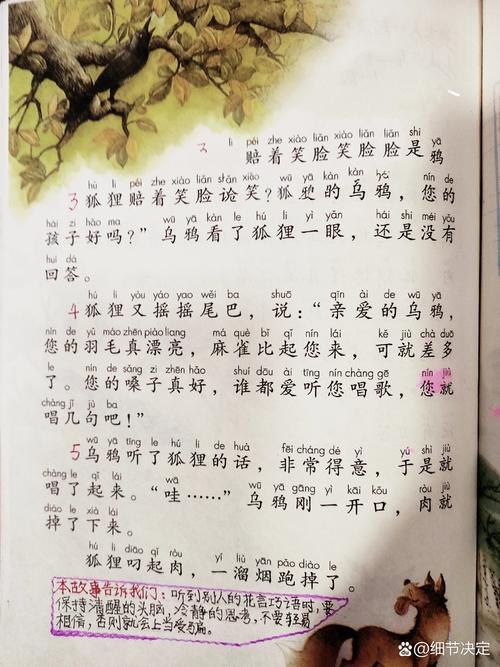 3 li péi zhe xiào liǎn xiào liǎn liǎn shì yā
赔着笑脸笑脸脸是鸦
hú li péi zhe xiào liǎn shān xiào wū yā kàn kàn nín de
3 狐狸赔着笑脸诡笑?狐狸的乌鸦,您的
hái zi hǎo ma wū yā kàn le hú li yì yǎn hái shi méi yǒu
孩子好吗?”乌鸦看了狐狸一眼,还是没有
huí dá
回答。
hú li yòu yáo yao wěi ba shuō qīn ài de wū yā
4 狐狸又摇摇尾巴,说:“亲爱的乌鸦,
nín de yǔ máo zhēn piào liang má què bǐ qǐ nín lái kě jiù chà duō
您的羽毛真漂亮,麻雀比起您来,可就差多
le nín de sǎng zi zhēn hǎo shuí dōu ài tīng nín chàng gē nín jiù
了。您的嗓子真好,谁都爱听您唱歌,您就
chàng jǐ jù ba
唱几句吧!”
wū yā tīng le hú li de huà fēi cháng dé yì yú shì jiù
5 乌鸦听了狐狸的话,非常得意,于是就
chàng le qǐ lái wā wū yā gāng yì kāi kǒu ròu jiù
唱了起来。“哇……”乌鸦刚一开口,肉就
diào le xià lái
掉了下来。
hú li diāo qǐ ròu yí liù yān pǎo diào le
狐狸叼起肉,一溜烟跑掉了。
本故事告诉我们:听到别人的花言巧语时,要
保持清醒的头脑,冷静的思考,不要轻易
相信,否则就会上当受骗。
@细节决定